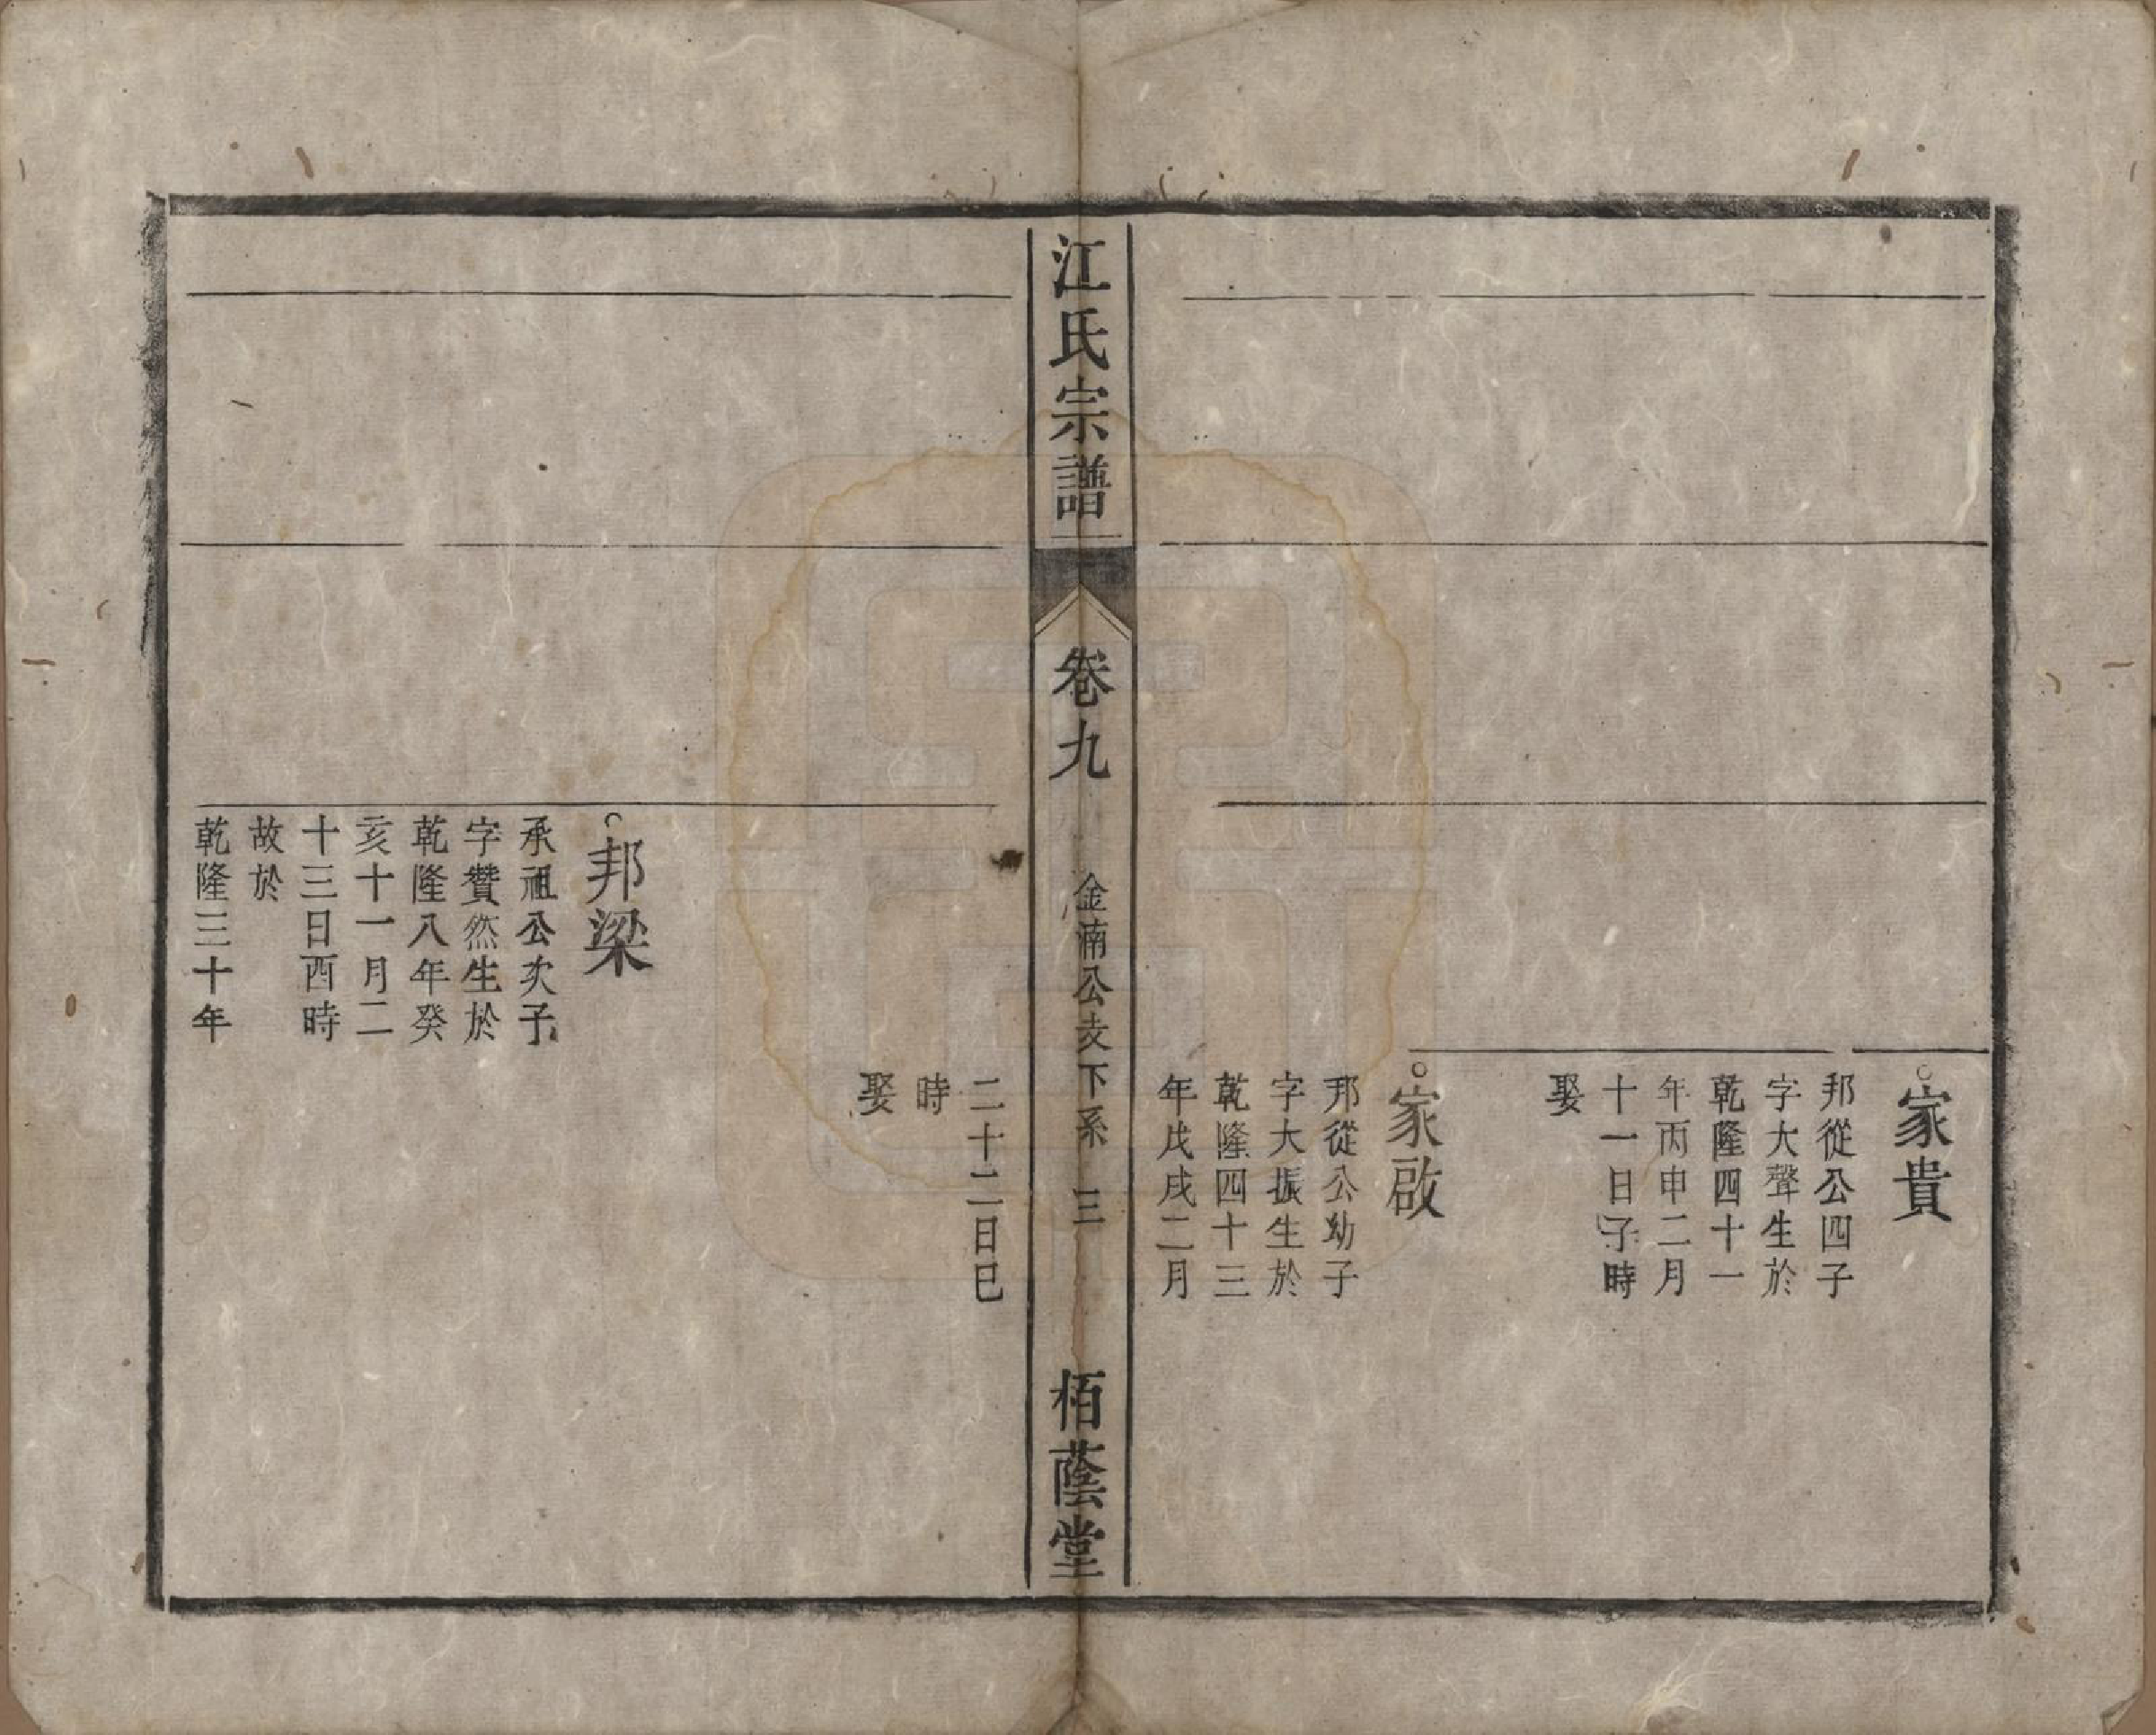 家貴
邦從公四子
字大聲生於
乾隆四十一
年丙申二月
十一日子時
娶
家啟
邦從公幼子
字大振生於
乾隆四十三
年戊戌二月
江氏宗譜
卷九
金湳公支下系 三
栢蔭堂
二十二日巳
時
娶
邦梁
承祖公次子
字贊然生於
乾隆八年癸
亥十一月二
十三日酉時
故於
乾隆三十年